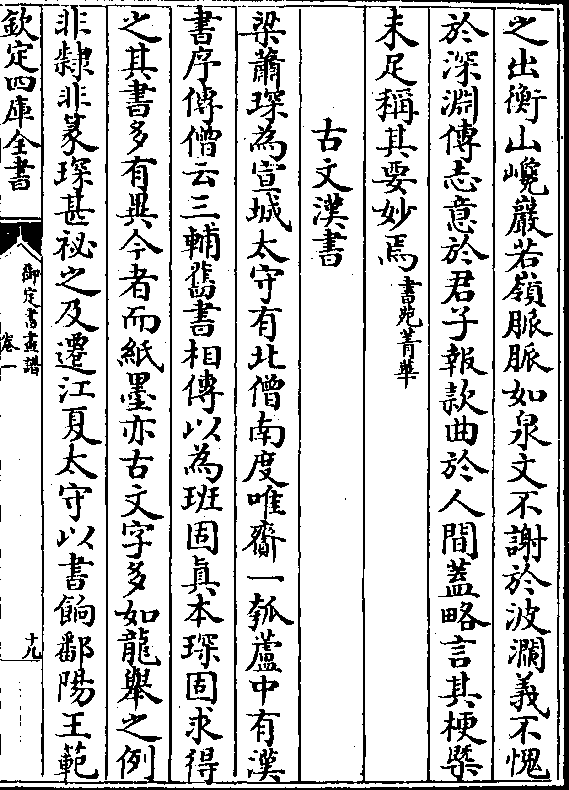 之出衡山巉巖若嶺脈脈如泉文不謝於波瀾義不愧
於深淵傳志意於君子報款曲於人間蓋略言其梗槩
未足稱其要妙焉書苑菁華
古文漢書
梁蕭琛為宣城太守有北僧南度唯齎一瓠蘆中有漢
書序傳僧云三輔舊書相傳以為班固真本琛固求得
之其書多有異今者而紙墨亦古文字多如龍舉之例
非隸非篆琛甚祕之及遷江夏太守以書餉鄱陽王範
欽定四庫全書
御定書畫譜
卷一
十九